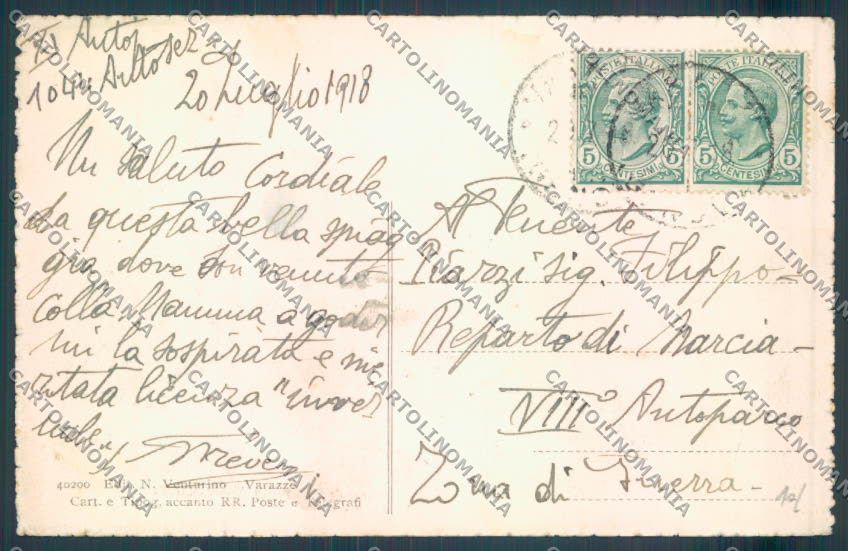 104ª Autosez
20 Luglio 1918
Un saluto Cordiale
da questa bella spiag
gia dove son venuto
colla Mamma a goder
mi la sospirata e me
ritata licenza "inver
nale"
POSTE ITALIANE
POSTE ITALIANE
5 5
5 5
CENTESIMI
CENTESIMI
Al Tenente
Piazzi Sig. Filippo
Reparto di Marcia
VIIIº Autoparco
Zona di Guerra
40200 Edit. N. Venturino Varazze
Cart. e Tipog. accanto RR. Poste e Telegrafi
CARTOLINOMANIA